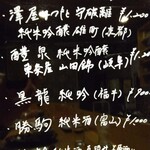 ・澤屋まつもと 守破離 ¥1,200
純米吟醸 雄町 (京都)
・醴泉 純米吟醸
東条産 山田錦 (岐阜) ¥1,200
・黒龍 純吟 (福井) ¥900
・勝駒 純米酒 (富山) ¥1,000